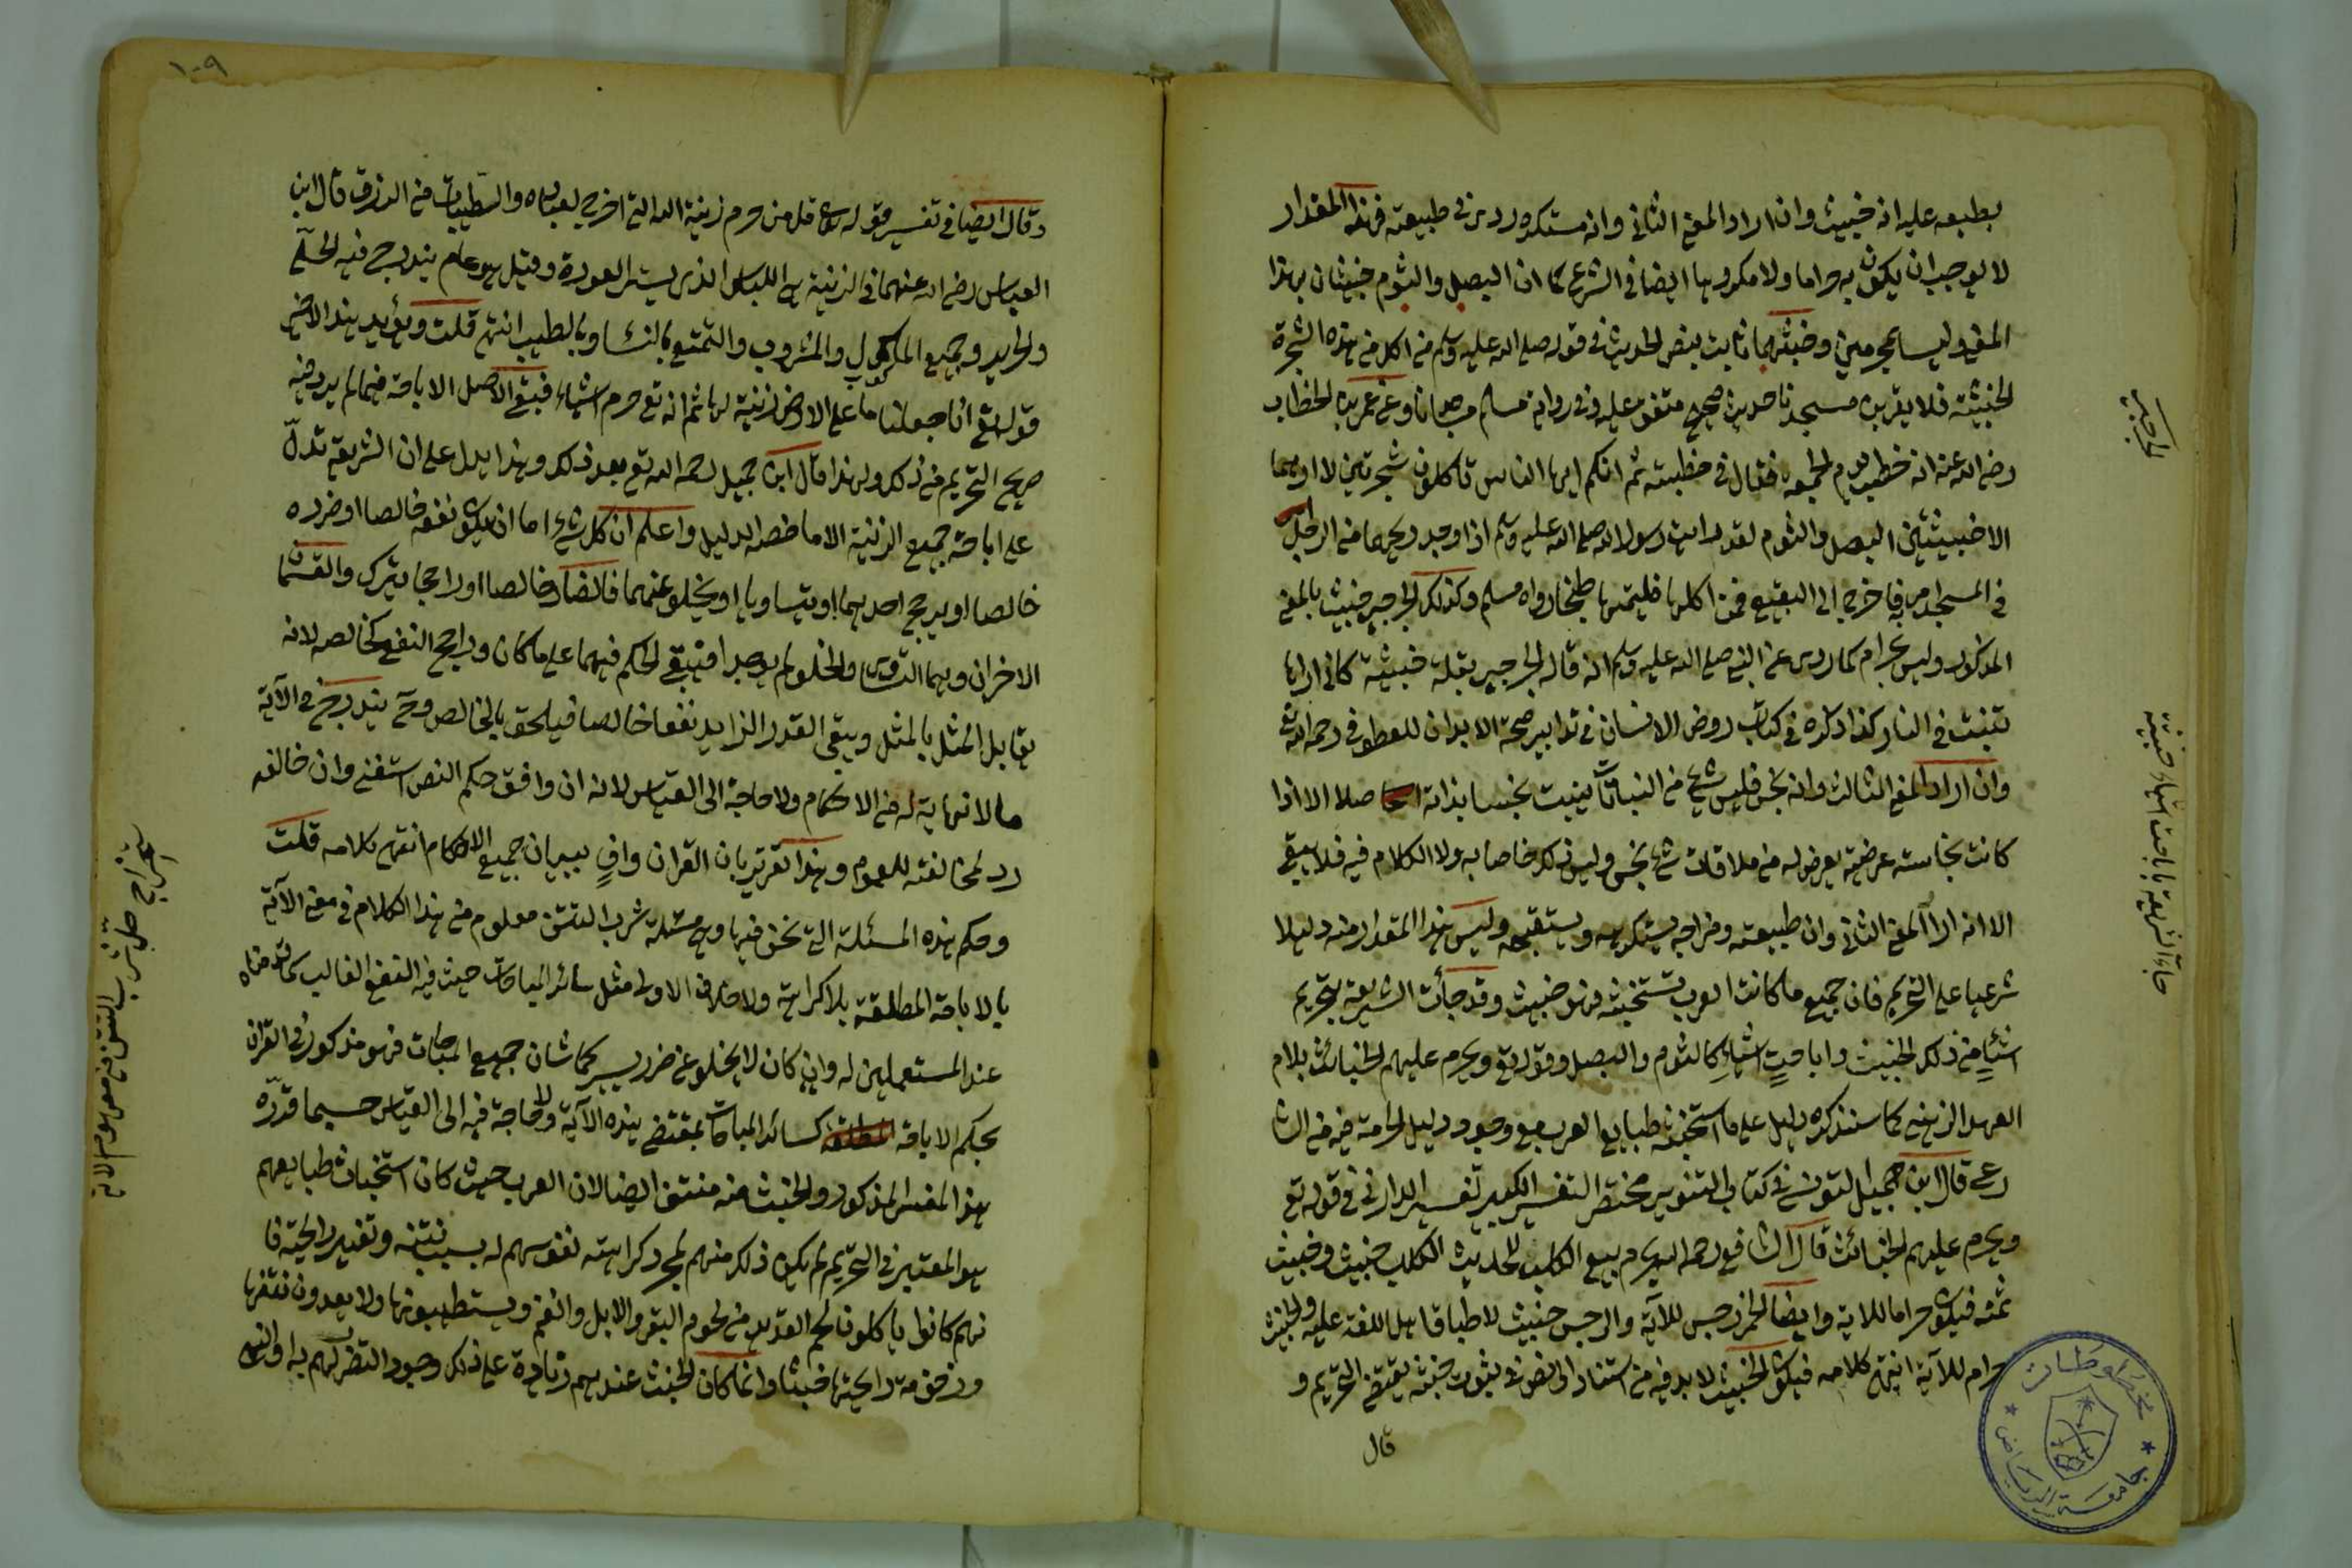 بطبعه عليه انه خبيث وان اراد المعنى الثاني وانه مستكره ردئ في طبيعته فهذا المقدار
لا يوجب ان يكون به حراما ولا مكروها ايضا في الشرع كما ان البصل والثوم خبيثان بهذا
المعنى وليسا بمحرمين وخبثهما ثابت بنص الحديث في قوله صلى الله عليه وسلم من اكل من هذه الشجرة
الخبيثة فلا يقربن مسجدنا حديث صحيح متفق عليه وفي رواية مسلم وعن عمر بن الخطاب
رضي الله عنه انه خطب يوم الجمعة فقال في خطبته ثم انكم ايها الناس تاكلون شجرتين لا اراهما
الا خبيثتين البصل والثوم لقد رايت رسول الله صلى الله عليه وسلم اذا وجد ريحهما من الرجل
في المسجد امر به فاخرج الى البقيع فمن اكلها فليمتها طبخا رواه مسلم وكذلك الجرجير خبيث بالمعنى
المذكور وليس بحرام كما روى عن النبي صلى الله عليه وسلم انه قال الجرجير بقلة خبيثة كاني اراها
تنبت في النار كذا ذكره في كتاب روض الانسان في تدابير صحة الابدان للعطوفي رحمه الله تعالى
وان اراد المعنى الثالث وانه نجس فليس شئ من النباتات ينبت نجسا بذاته اصلا الا اذا
كانت نجاسته عرضية يعرض له من ملاقات شئ نجس وليس ذلك خاصا به ولا الكلام فيه فلا يبقى
الا انه اراد المعنى الثاني وان طبيعته ومزاجه يستكرهه ويستقبحه وليس هذا المقدار منه دليلا
شرعيا على التحريم فان جميع ما كانت العرب تستخبثه فهو خبيث وقد جأت الشريعة بتحريم
اشيآءٍ من ذلك الخبيث واباحتِ اشياءٍ كالثوم والبصل وقوله تع ويحرم عليهم الخبائث بلام
العهد الذهني كما سنذكره دليل على ما استخبثه طبايع العرب مع وجود دليل الحرمة فيه من الشا
رع قال ابن جميل التونسي في كتاب التنوير مختصر التفسير الكبير تفسير الرازي في قوله تع
ويحرم عليهم الخبائث قال الشافعي رحمه الله يحرم بيع الكلب لحديث الكلب خبيث وخبيث
ثمنه فيكون حراما للاية وايضا الخمر رجس للآية والرجس خبيث لاطباق اهل اللغة عليه والخبيث
حرام للآية انتهى كلامه فيكون الخبيث لا بد فيه من استناد الى نص في ثبوت خبثه يقتضي التحريم و
قال
الجرجير
جآءة الشريعة باباحة اشياء خبيثة
مخطوطات
جامعة الرياض
١٠٩
وقال ايضا في تفسير قوله تع قل من حرم زينة الله التي اخرج لعباده والطيبات من الرزق قال ابن
العباس رضي الله عنهما في الزينة هي اللباس الذي يستر العورة وقيل هو عام يندرج فيه الحلّي
والحرير وجميع الماكول والمشروب والتمتع بالنسا وبالطيب انتهى قلت ويؤيد هذا الاخير
قوله تع انا جعلنا ما على الارض زينة لها ثم انه تع حرم اشياء فبقى الاصل الاباحة فيما لم يرد فيه
صريح التحريم من ذلك ولهذا قال ابن جميل رحمه الله تع بعد ذلك وهذا يدل على ان الشريعة تدلّ
على اباحة جميع الزينة الا ما خصه الدليل واعلم ان كل شئ اما ان يكون نفعه خالصا او ضرره
خالصا او يرجح احدهما او يتساويا او يخلو عنهما فالضار خالصا او راجحا يترك والقسمان
الاخران وهما التساوى والخلو لم يوجدا فيبقى الحكم فيهما على ما كان وراجح النفع كخالصه لانه
يقابل المثل بالمثل ويبقى القدر الزايد نفعا خالصا فيلحق بالخالص وح يندرج في الآية
ما لا نهاية له من الاحكام ولا حاجة الى القياس لانه ان وافق حكم النص استغنى وان خالفه
رد لمخالفته للعموم وهذا تقرير بان القران وافٍ ببيان جميع الاحكام انتهى كلامه قلت
وحكم هذه المسئلة التي نحن فيها وهي مسئلة شرب التتن معلوم من هذا الكلام في معنى الآية
بالاباحة المطلقة بلا كراهة ولا خلاف الاولى مثل سائر المباحات حيث فيه النفع الغالب كما قدمناه
عند المستعملين له وان كان لا يخلو عن ضرر يسير كما شان جميع المباحات فهو مذكور في القران
بحكم الاباحة المطلقة كسائر المباحات بمقتضى هذه الآية ولا حاجة فيه الى القياس حسبما قدّره
هذا المفسر المذكور والخبث عنه منتف ايضا لان العرب حيث كان استخباث طبايعهم
هو المعتبر في التحريم لم يكن ذلك منهم لمجرد كراهته نفوسهم له بسبب نتنه وتغير رائحته فا
نهم كانوا ياكلون لحم القديد من لحوم البقر والابل والغنم ويستطيبونها ولا يعدون تغيرها
وزفومة رائحتها خبثا وانما كان الخبث عندهم زيادة على ذلك وجود التضرر لهم به او انهم
استخراج حل شرب التتن من مفهوم الاية